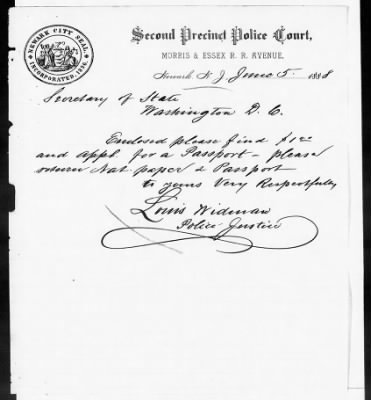 NEWARK CITY SEAL.
INCORPORATED, 1836.
Second Precinct Police Court,
MORRIS & ESSEX R. R. AVENUE.
Newark N. J. June 5. 1888
Secretary of State
Washington D. C.
Enclosed please find $1
and appl. for a Passport - please
return Nat paper & Passport
to yours Very Respectfully
Louis Widman
Police Justice